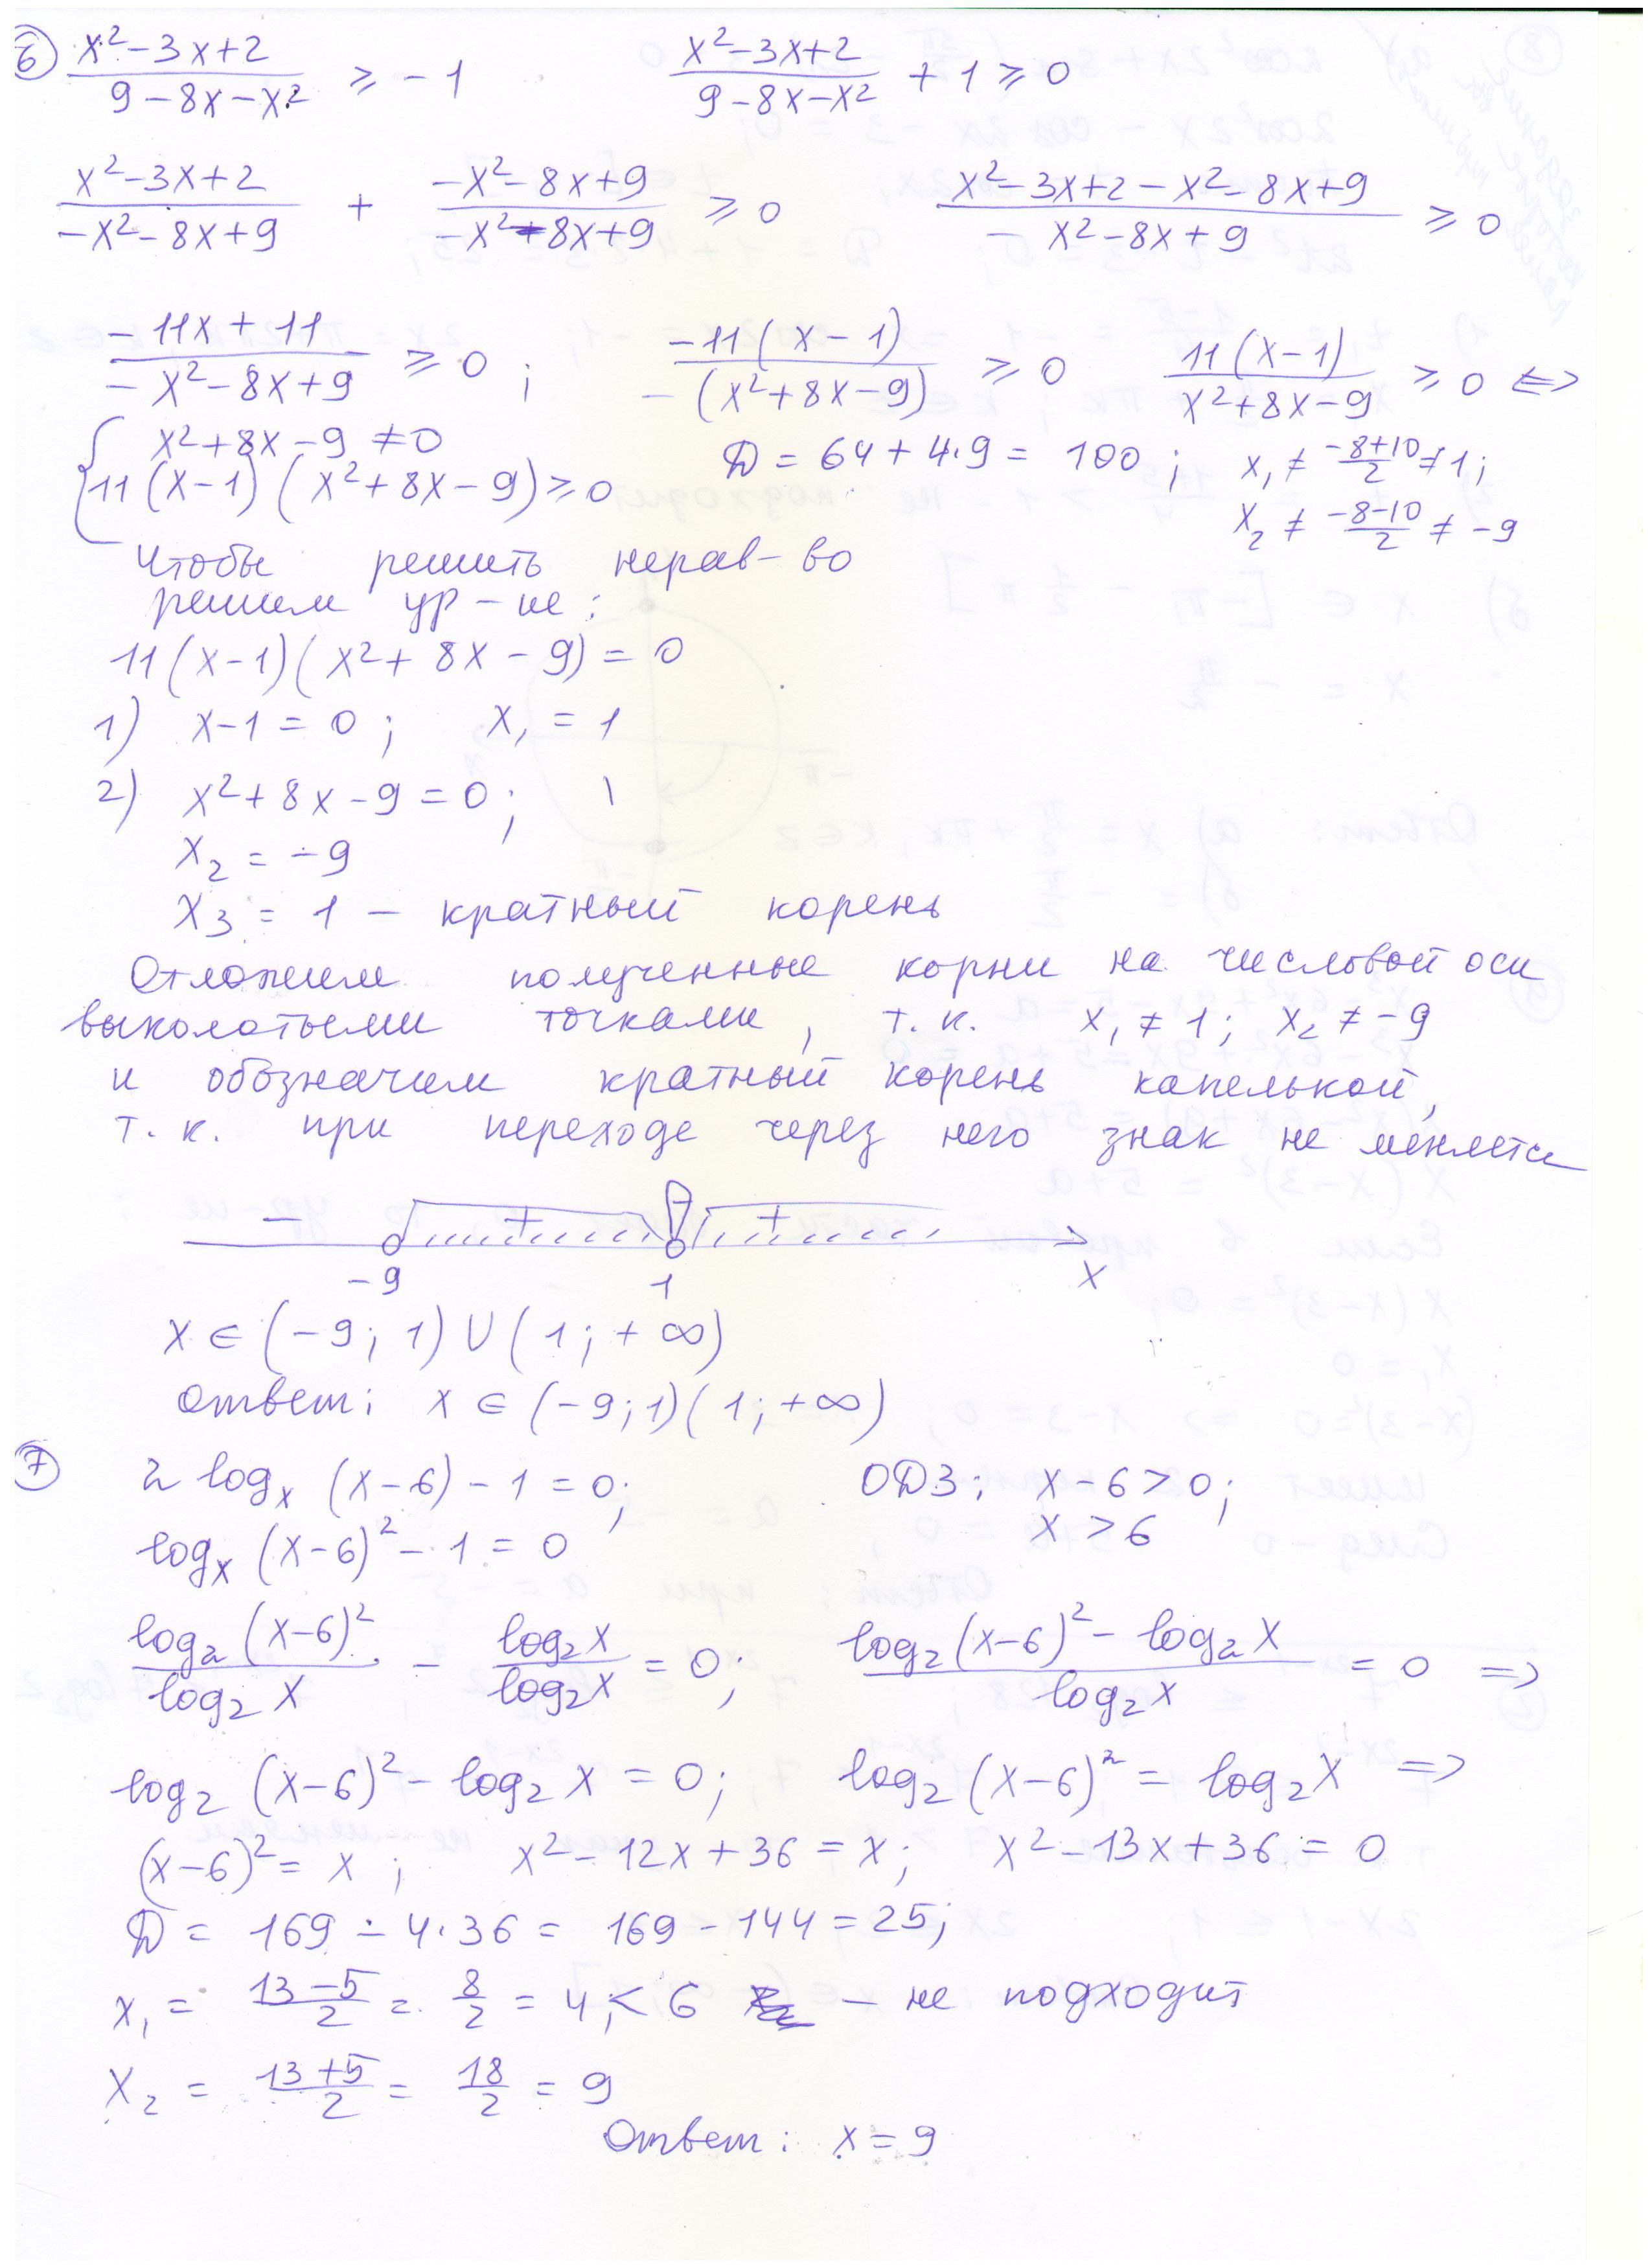 6) (x²-3x+2)/(9-8x-x²) ≥ -1   (x²-3x+2)/(9-8x-x²) + 1 ≥ 0
(x²-3x+2)/(-x²-8x+9) + (-x²-8x+9)/(-x²-8x+9) ≥ 0   (x²-3x+2-x²-8x+9)/(-x²-8x+9) ≥ 0
(-11x+11)/(-x²-8x+9) ≥ 0 ;   -11(x-1)/-(x²+8x-9) ≥ 0   11(x-1)/(x²+8x-9) ≥ 0 <=>
{ x²+8x-9 ≠ 0   D = 64+4·9 = 100 ;   x₁ ≠ (-8+10)/2 ≠ 1;
11(x-1)(x²+8x-9) ≥ 0   x₂ ≠ (-8-10)/2 ≠ -9
Чтобы решить нерав-во
решим ур-ие:
11(x-1)(x²+8x-9) = 0
1) x-1 = 0 ;   x₁ = 1
2) x²+8x-9 = 0 ;
x₂ = -9
x₃ = 1 – кратный корень
Отложим полученные корни на числовой оси
выколотыми точками, т.к. x₁ ≠ 1; x₂ ≠ -9
и обозначим кратный корень капелькой,
т.к. при переходе через него знак не меняется
- + +
-9 1 x
x ∈ (-9; 1) ∪ (1; +∞)
Ответ: x ∈ (-9;1)(1;+∞)
7) 2 log_x (x-6) - 1 = 0;   ОДЗ: x-6 > 0;
log_x (x-6)² - 1 = 0   x > 6
log₂(x-6)²/log₂x - log₂x/log₂x = 0;   (log₂(x-6)² - log₂x)/log₂x = 0 =>
log₂(x-6)² - log₂x = 0;   log₂(x-6)² = log₂x =>
(x-6)² = x ;   x²-12x+36 = x;   x²-13x+36 = 0
D = 169 - 4·36 = 169 - 144 = 25;
x₁ = (13-5)/2 = 8/2 = 4; < 6 – не подходит
x₂ = (13+5)/2 = 18/2 = 9
Ответ: x = 9